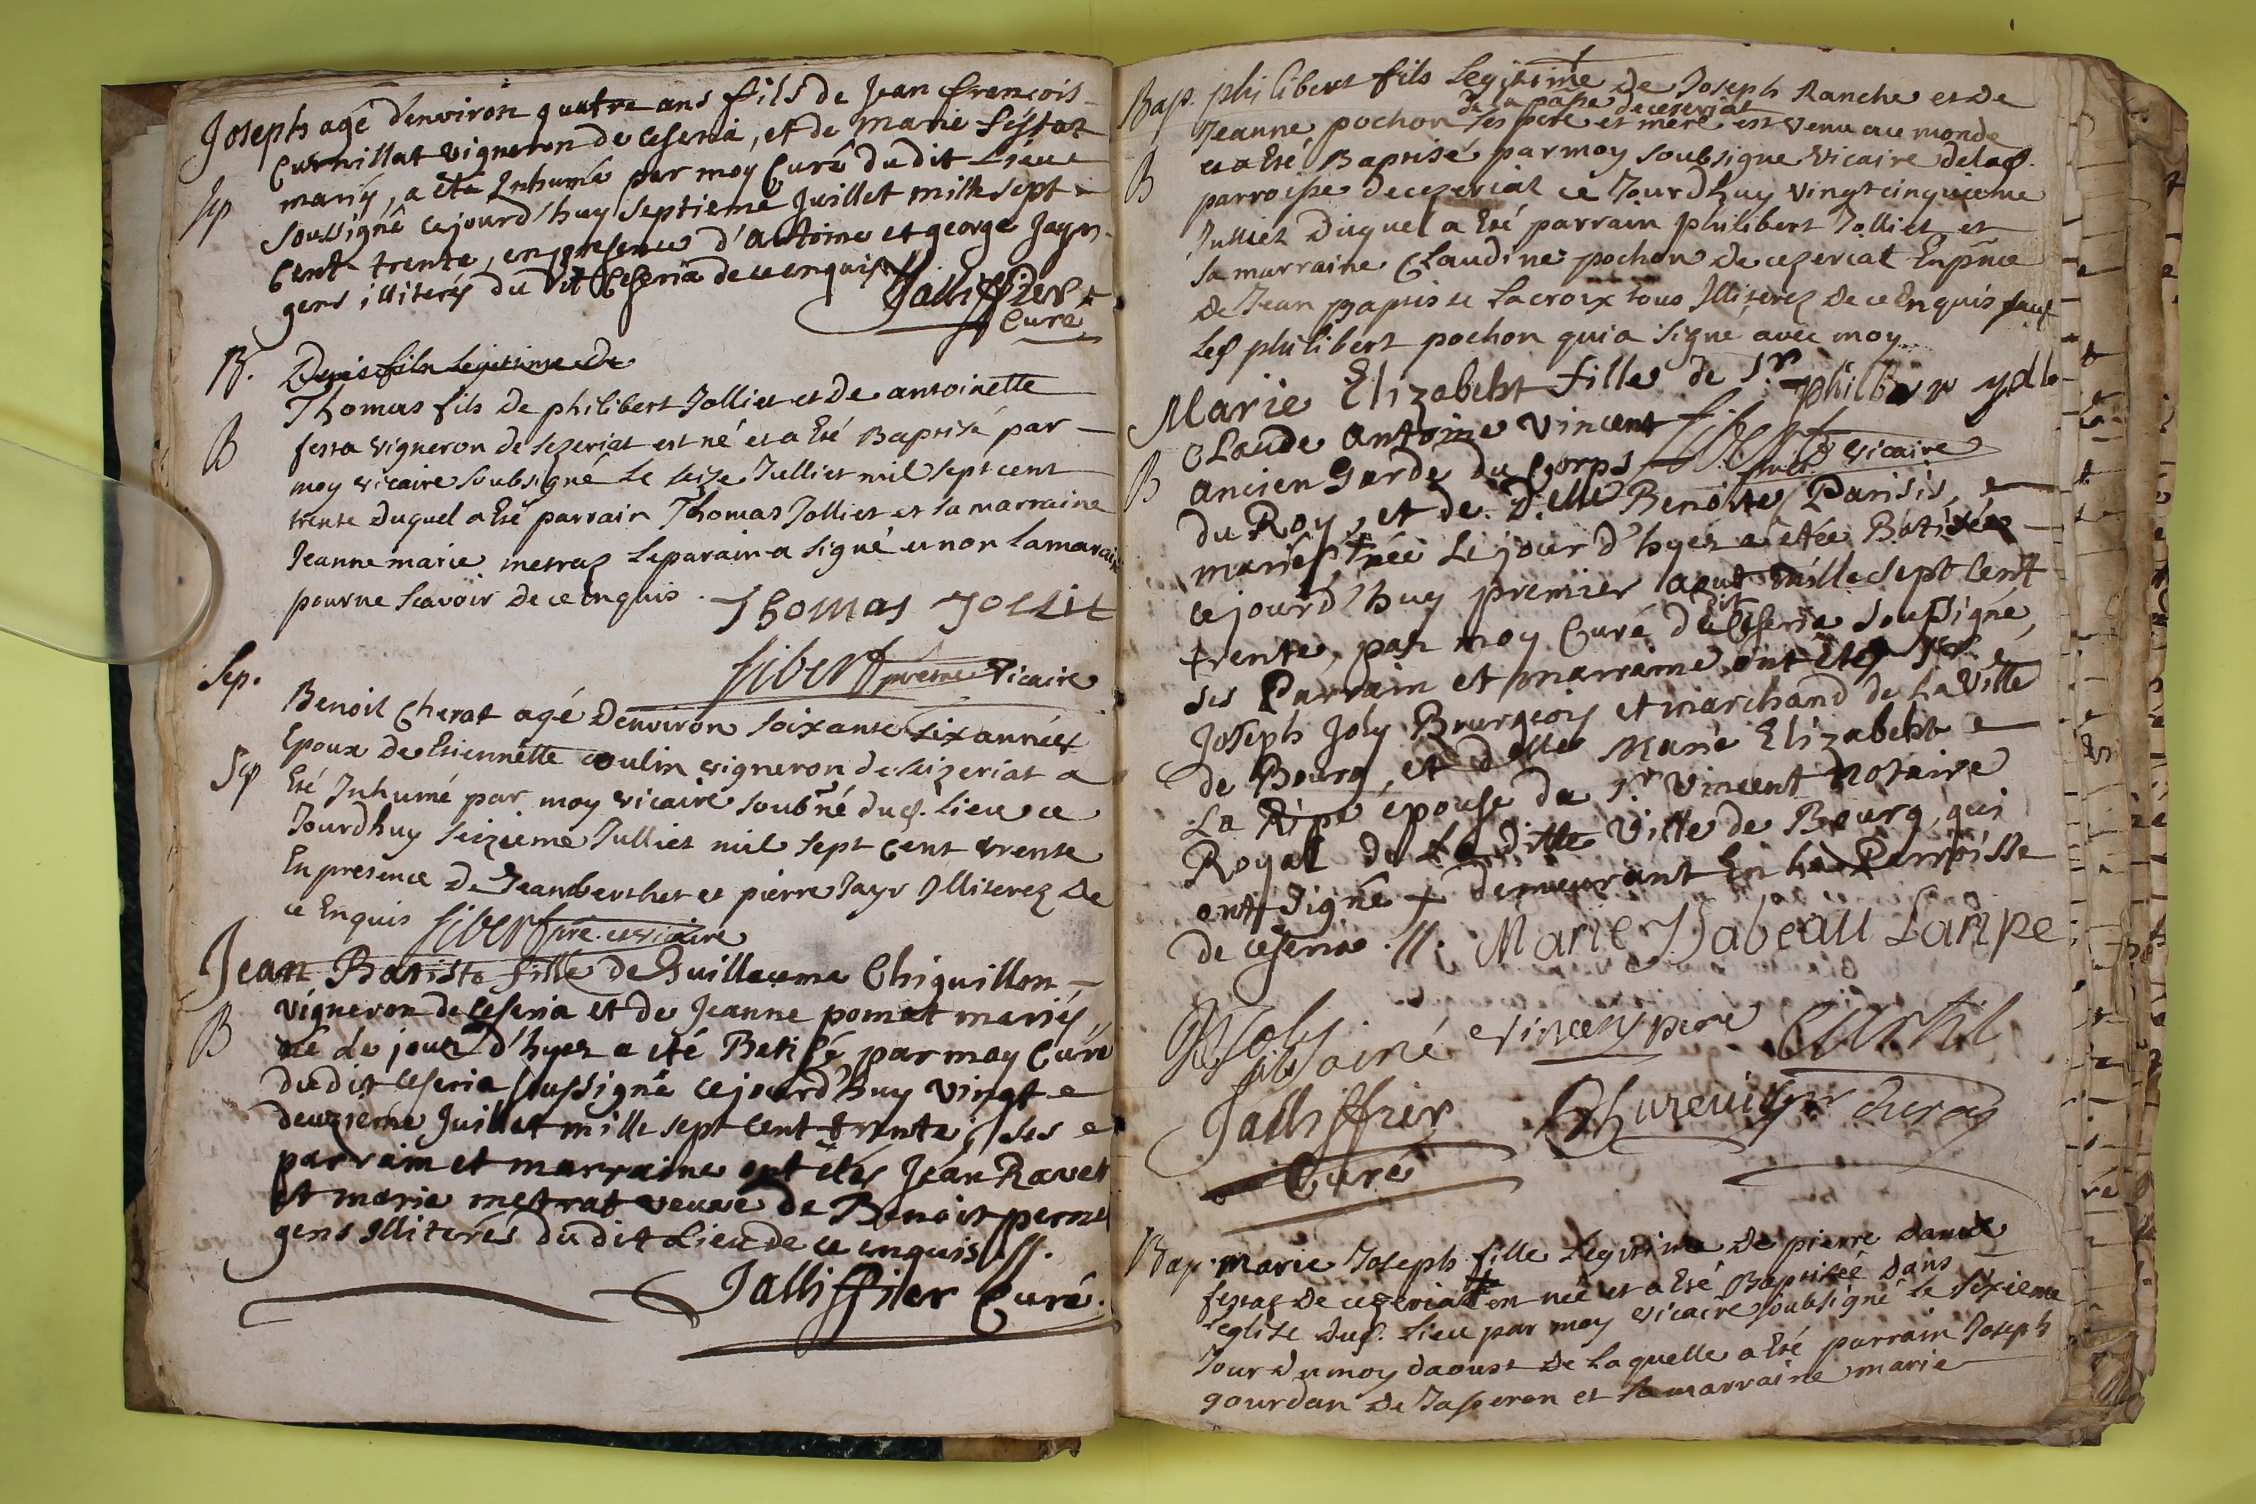 Joseph agé d'environ quatre ans fils de Jean francois
Curnillat vigneron de Ceseria, et de marie festaz
Sep mariés, a eté Inhumé par moy Curé du dit Lieu
soussigné cejourd'huy septieme Juillet mille sept
Cent trente, en presence d'antoine et george Jayr
gens illiterés du dit Ceseria de ce enquis //
Jalliffier
Curé
B.
Denis fils legitime de
Thomas fils de philibert Jolliet et de antoinette
B festa vigneron de sezeriat est né et a Eté Baptisé par
moy vicaire soubsigné Le seize Julliet mil sept cent
trente duquel a Eté parrain Thomas Jolliet et la marraine
Jeanne marie metraz Le parain a signé et non la maraine
pour ne scavoir de ce enquis. Thomas Jolliet
fibert pretre vicaire
Sep.
Benoit Cherat agé Denviron soixante six années
Epoux de Etiennette coulin vigneron de seizeriat a
Sep Eté Inhumé par moy vicaire soubné dud. lieu ce
Jourdhuy seizieme Julliet mil sept cent trente
En presence de Jean berthet et pierre Jayr Illiterez de
ce Enquis fibert pre. et vicaire
Jean Batiste fille de Guillaume Chiguillon
vigneron de Ceseria et de Jeanne pomat mariés,
B né le jour d'hyer a eté Batisé par moy Curé
du dit Ceseria soussigné cejourd'huy vingt
deuzieme Juillet mille sept Cent trente, ses
parrain et marraine ont étés Jean Ravet
et marie metrat veuve de Benoit perne
gens Illiterés du dit Lieu de ce enquis //.
Jalliffier Curé.
Bap. philibert fils Legitime de Joseph Ranche et de
de la passe de cezeriat
Jeanne pochon ses pere et mere est venu au monde
et a Eté Baptisé par moy soubsigne vicaire de lad.
B parroisse de cezeriat ce Jourdhuy vingt cinquieme
Julliet Duquel a Eté parrain philibert Jolliet et
sa marraine Claudine pochon de cezeriat En pnce
de Jean Baptiste Lacroix tous Illiterez de ce Enquis sauf
led philibert pochon qui a signé avec moy
philber
fibert pretre vicaire
Marie Elizabeht fille de Sr
Claude Antoine Vincent
B ancien Garde du Corps
du Roy, et de Delle Benoite Parisis,
mariés, née Le jour d'hyer a étée Batisée
ce jourd'huy premier aout mille sept Cent
trente, par moy Curé du dit Ceseria soussigné,
ses Parrain et marraine ont étés Sr.
Joseph Joly Bourgeois et marchand de La Ville
de Bourg, et delle Marie Elizabeht
La Ripe épouse du Sr. Vincent Notaire
Royal de La ditte Ville de Bourg, qui
ont signé + demeurant En La Parroisse
de Ceseria. //. Marie Isabeau Laripe
Joly
vincent pere Curtil
Jalliffier
Curé
Bap. marie Joseph fille Legitime de pierre
festas de cezeriat en née et a Eté Baptisée dans
leglise dud. Lieu par moy vicaire soubsigné le sixieme
Jour du moy daoust de Laquelle a Eté parrain Joseph
gourdan de Jasseron et la marraine marie